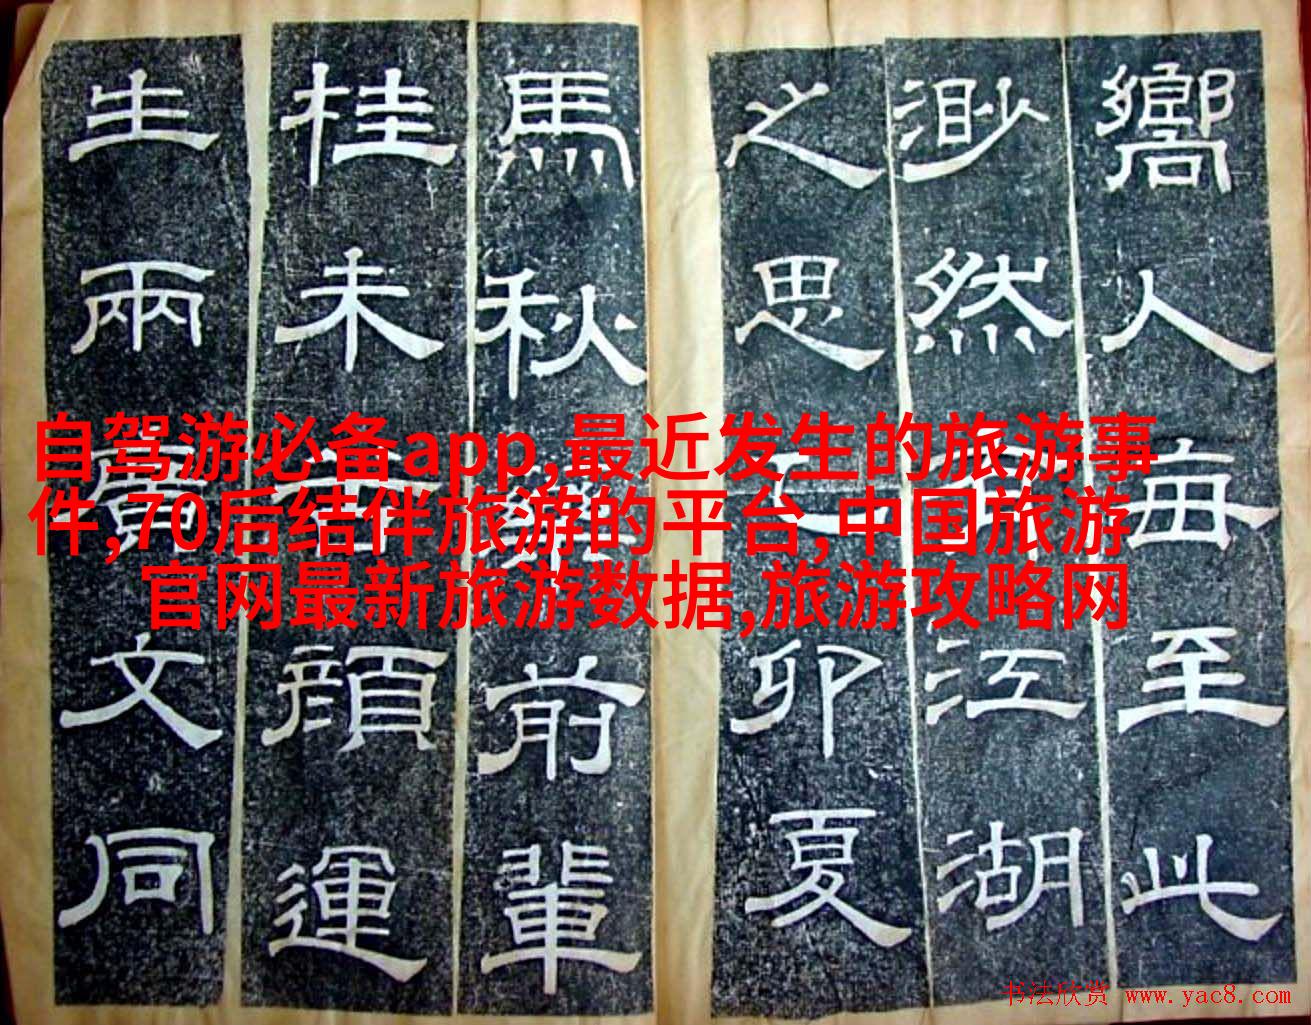 嚮人每至此
渺然江湖
之思丁卯夏
馬秋前輩
桂未谷顔運
生兩文同
自驾游必备app,最近发生的旅游事
件,70后结伴旅游的平台,中国旅游
官网最新旅游数据,旅游攻略网
书法欣赏 www.yac8.com